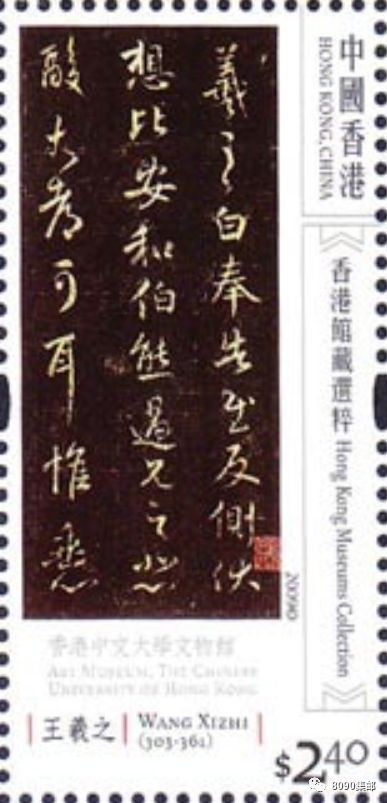 中國香港
HONG KONG, CHINA
香港館藏選粹 Hong Kong Museums Collection
羲之白奉告反側伏
想比安和伯熊過見之悲
酸大都可耳惟
香港中文大學文物館
ART MUSEUM, THE CHINESE
UNIVERSITY OF HONG KONG
王羲之 WANG XIZHI
(303-361)
$2.40
8090集邮